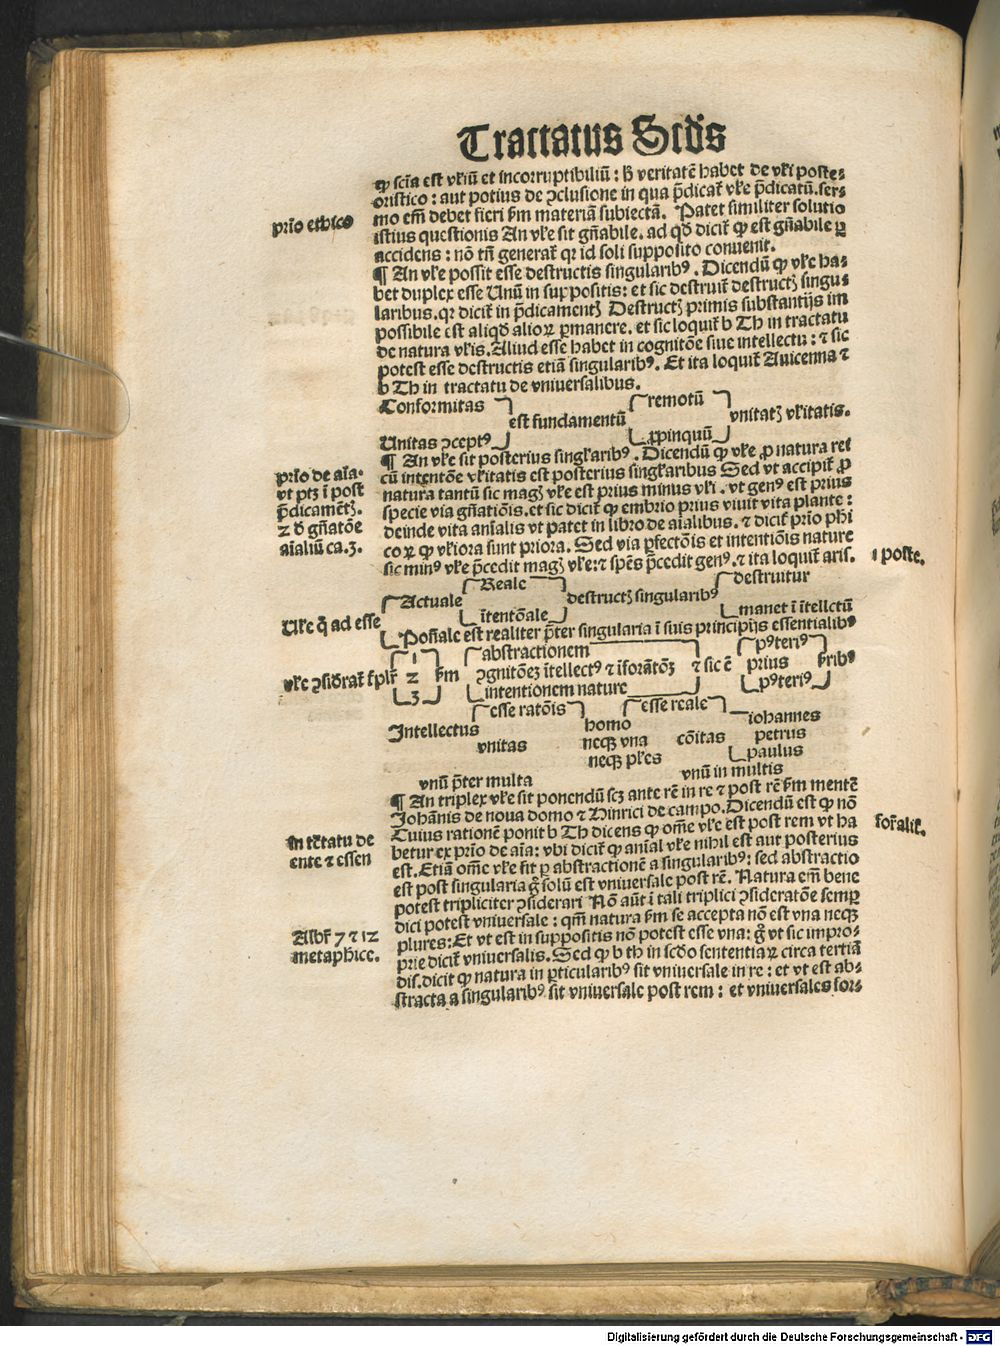 Tractatus Scd̄s
ꝙ scīa est vl̄iū et incorruptibiliū : ꝧ veritatē habet de vl̄i poste-
oristico : aut potius de ꝯclusione in qua p̄dicat̄ vl̄e p̄dicatū. ser-
mo em̄ debet fieri ẜm materiā subiectā. Patet similiter solutio
prīo ethico
istius questionis An vl̄e sit gn̄abile. ad qd̄ dicit̄ ꝙ est gn̄abile ꝑ
accidens : nō tn̄ generat̄ qꝛ id soli supposito conuenit.
¶ An vl̄e possit esse destructis singularibꝰ. Dicendū ꝙ vl̄e ha-
bet duplex esse Unū in suppositis : et sic destruit̄ destructꝭ singu-
laribus. qꝛ dicit̄ in p̄dicamentꝭ Destructꝭ primis substantijs im
possibile est aliqd̄ alioꝝ ꝑmanere. et sic loquit̄ b Th in tractatu
de natura vl̄is. Aliud esse habet in cognitōe siue intellectu : ⁊ sic
potest esse destructis etiā singularibꝰ. Et ita loquit̄ Auicenna ⁊
b Th in tractatu de vniuersalibus.
Conformitas
est fundamentū
remotū
vnitatꝭ vl̄itatis.
Unitas ꝯceptꝰ
ꝓpinquū
¶ An vl̄e sit posterius singl̄aribꝰ. Dicendū ꝙ vl̄e ꝓ natura rei
cū intentōe vl̄itatis est posterius singl̄aribus Sed vt accipit̄ ꝓ
natura tantū sic magꝭ vl̄e est prius minus vl̄i. vt genꝰ est prius
specie via gn̄atiōis. et sic dicit̄ ꝙ embrio prius viuit vita plante :
deinde vita aīalis vt patet in libro de aīalibus. ⁊ dicit̄ prīo phi
coꝝ ꝙ vl̄iora sunt priora. Sed via ꝑfectōis et intentiōis nature
sic minꝰ vl̄e p̄cedit magꝭ vl̄e : ⁊ spēs p̄cedit genꝰ. ⁊ ita loquit̄ aris.
prīo de aīa.
vt ptꝫ ī post
p̄dicamētꝭ.
2 d̄ gn̄atōe
aīaliū ca. 3.
ī poste.
Ul̄e qd̄ ad esse
Actuale
Reale
ītentōale
destructꝭ singularibꝰ
destruitur
manet ī ītellctū
Potn̄ale est realiter p̄ter singularia ī suis principijs essentialibꝰ
vl̄e ꝯsid̄rat̄ tp̄lr̄
1
2
3
ẜm
abstractionem
ꝯgnitōeꝫ ītellectꝰ ⁊ īforātōꝫ
intentionem nature
⁊ sic ē
pꝰteriꝰ
prius
pꝰteriꝰ
Intellectus
esse ratōis
vnitas
homo
neqꝫ vna
neqꝫ pl̄es
esse reale
cōitas
iohannes
petrus
paulus
vnū p̄ter multa
vnū in multis
¶ An triplex vl̄e sit ponendū scꝫ ante rē in re ⁊ post rē ẜm mentē
Johānis de noua domo ⁊ Hinrici de campo. Dicendū est ꝙ nō
Cuius rationē ponit b Th dicens ꝙ om̄e vl̄e est post rem vt ha
betur ex prīo de aīa : vbi dicit̄ ꝙ aīal vl̄e nihil est aut posterius
est. Etiā om̄e vl̄e fit ꝑ abstractionē a singularibꝰ : sed abstractio
est post singularia gͦ solū est vniuersale post rē. Natura em̄ bene
potest tripliciter ꝯsiderari Nō aūt ī tali triplici ꝯsideratōe semꝑ
dici potest vniuersale : qm̄ natura ẜm se accepta nō est vna neqꝫ
plures : Et vt est in suppositis nō potest esse vna : gͦ vt sic impro-
prie dicit̄ vniuersalis. Sed ꝙ b th in scd̄o sententiaꝝ circa tertiā
dis. dicit ꝙ natura in ꝑticularibꝰ sit vniuersale in re : et vt est ab-
stracta a singularibꝰ sit vniuersale post rem : et vniuersales for-
In tc̄tatu de
ente ⁊ essen
for̄alit̄.
Albr̄ 7 ⁊ 12
metaph̄ice.
Digitalisierung gefördert durch die Deutsche Forschungsgemeinschaft - DFG